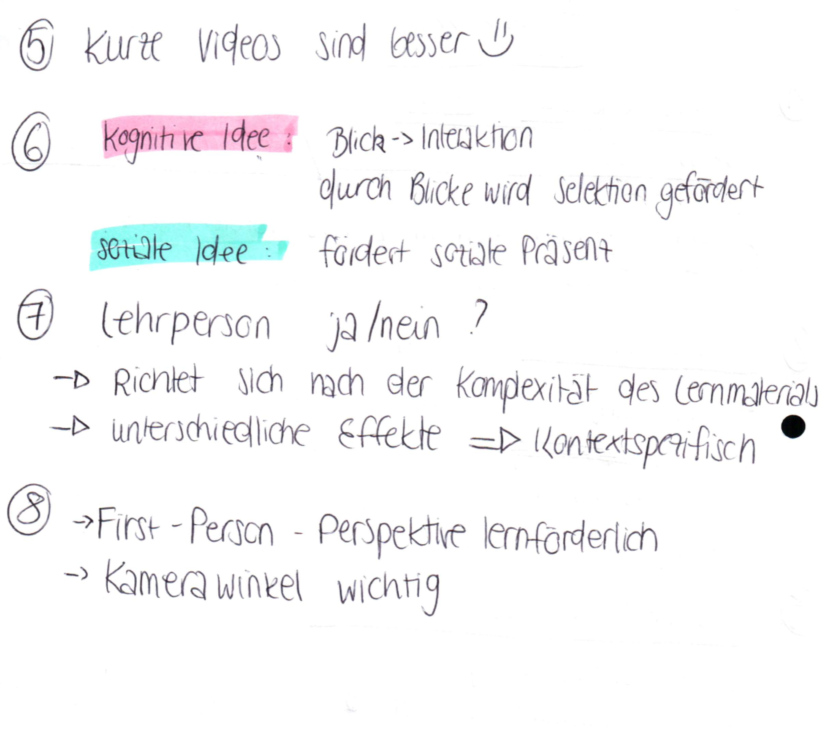 ⑤ Kurze Videos sind besser
⑥ Kognitive Idee: Blick -> Interaktion
durch Blicke wird Selektion gefördert
soziale Idee: fördert soziale Präsenz
⑦ Lehrperson ja/nein ?
-> Richtet sich nach der Komplexität des Lernmaterials
-> unterschiedliche Effekte => Kontextspezifisch
⑧ -> First-Person-Perspektive lernförderlich
-> Kamerawinkel wichtig